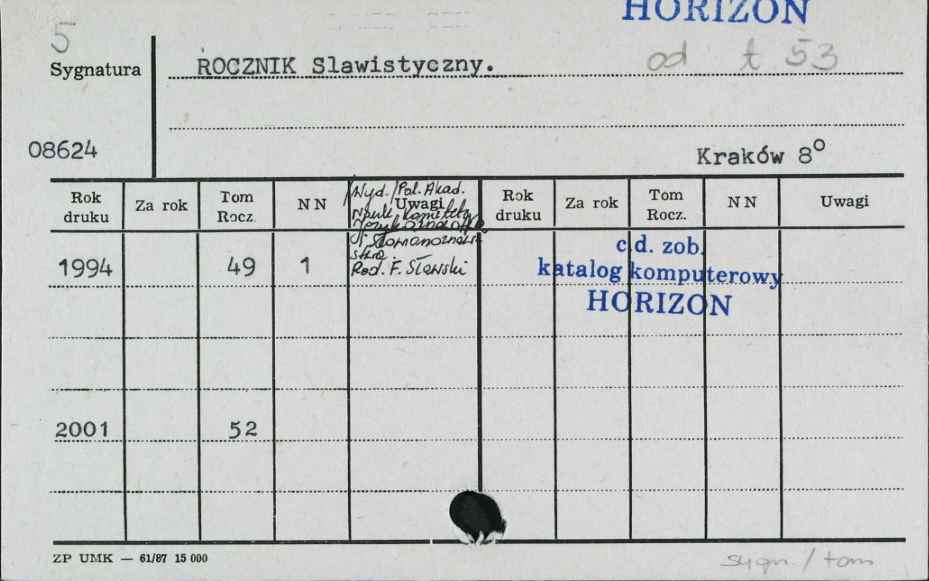 HORIZON
5
od t 53
Sygnatura
ROCZNIK Slawistyczny.
08624
Kraków 8°
Rok druku Za rok Tom Rocz. NN Uwagi Rok druku Za rok Tom Rocz. NN Uwagi
Wyd. Pol. Akad.
Nauk. Komitet
Słowianoznaw-
stwa.
Red. F. Sławski
1994 49 1
c.d. zob.
katalog komputerowy
HORIZON
2001 52
ZP UMK — 61/87 15 000
sygn. / tom